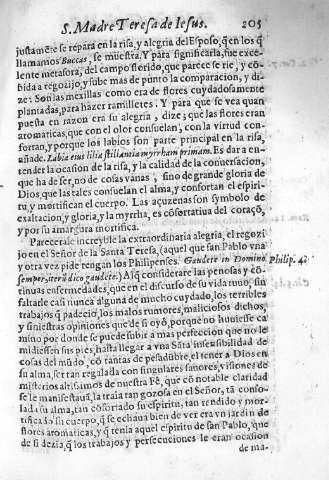 S. Madre Teresa de Iesus. 205
justamẽte se repara en la risa, y alegria del Esposo, q̃ en los q̃
llamamos Buccas, se muestra. Y para significarla, fue exce-
lente metafora, del campo florido, que parece se rie, y cõ-
bida a regozijo, y sube mas de punto la comparacion, y di-
ze: Son las mexillas como era de flores cuydadosamente
plantadas, para hazer ramilletes. Y para que se vea quan
puesta en razon era su alegria, dize; que las flores eran
aromaticas, que con el olor consuelan, con la virtud con-
fortan, y porque los labios son parte principal en la risa,
añade. Labia eius lilia stillantia myrrham primam. Es dar a en-
tender la ocasion de la risa, y la calidad de la conuersacion,
que ha de ser, no de cosas vanas, sino de grande gloria de
Dios, que las tales consuelan el alma, y confortan el espiri-
tu, y mortifican el cuerpo. Las açuzenas son symbolo de
exaltacion, y gloria, y la myrrha, es cõfortatiua del coraçõ,
y por su amargura mortifica.
Parecerale increyble la extraordinaria alegria, el regozi
jo en el Señor de la Santa Teresa, (aquel que san Pablo vna
y otra vez pide tengan los Philipenses. Gaudete in Domino Philip. 4.
semper, iterũ dico gaudete.) Al q̃ considerare las penosas y cõ-
tinuas enfermedades, que en el discurso de su vida tuuo, sin
faltarle casi nunca alguna de mucho cuydado, los terribles
trabajos q̃ padecio, los malos rumores, maliciosos dichos,
y siniestras opiniones que de si oyò, porque no huuiesse ca
mino por donde se puede subir a mas perfeccion que no le
midiessen sus pies, hasta llegar a vna Santa insensibilidad de
cosas del mũdo, cõ tantas de pesadũbre, el tener a Dios en
su alma, ser tan regalada con singulares fauores, y visiones de
misterios altisimos de nuestra Fè, que cõ notable claridad
se le manifestauã, la traia tan gozosa en el Señor, tã conso-
lada su alma, tan cõfortado su espiritu, tan rendido y mor-
tificado su cuerpo, q̃ se echaua bien de ver era vn jardin de
flores aromaticas, y q̃ tenia aquel espiritu de san Pablo, que
de si dezia, q̃ los trabajos y persecuciones le eran ocasion
de ma-